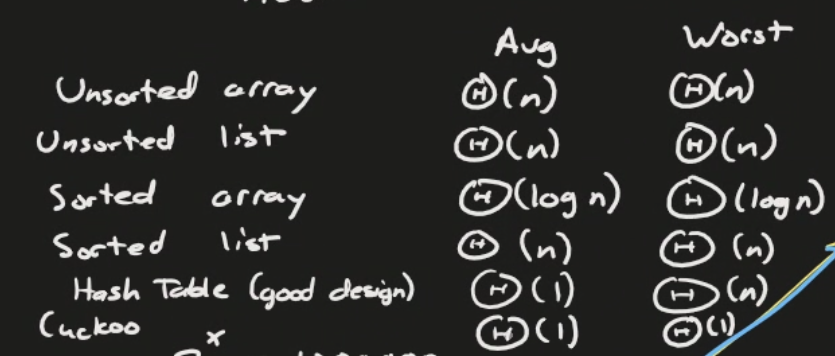 Avg Worst
Unsorted array Θ(n) Θ(n)
Unsorted list Θ(n) Θ(n)
Sorted array Θ(log n) Θ(log n)
Sorted list Θ(n) Θ(n)
Hash Table (good design) Θ(1) Θ(n)
Cuckoo Θ(1) Θ(1)
x